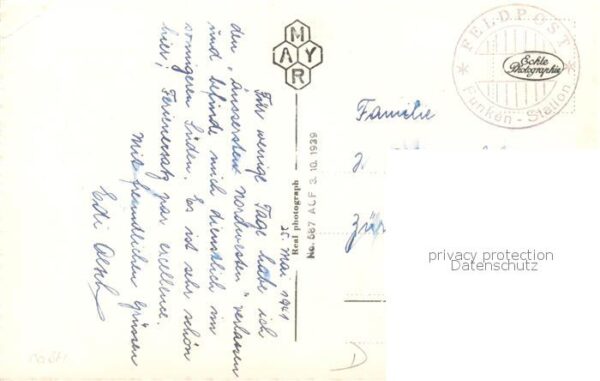 25. Mai 1941
Für wenige Tage habe ich
den "äussersten Nordwesten" verlassen
und befinde mich dienstlich im
sonnigeren Süden. Es ist sehr schön
hier; Ferienersatz par excellence.
Mit freundlichen Grüssen
Edi
MAYR
Real photograph
No. 587 ACF 3.10.1939
Familie
J.
Zür
FELDPOST
Funken-Station
Echte
Photographie
privacy protection
Datenschutz
D